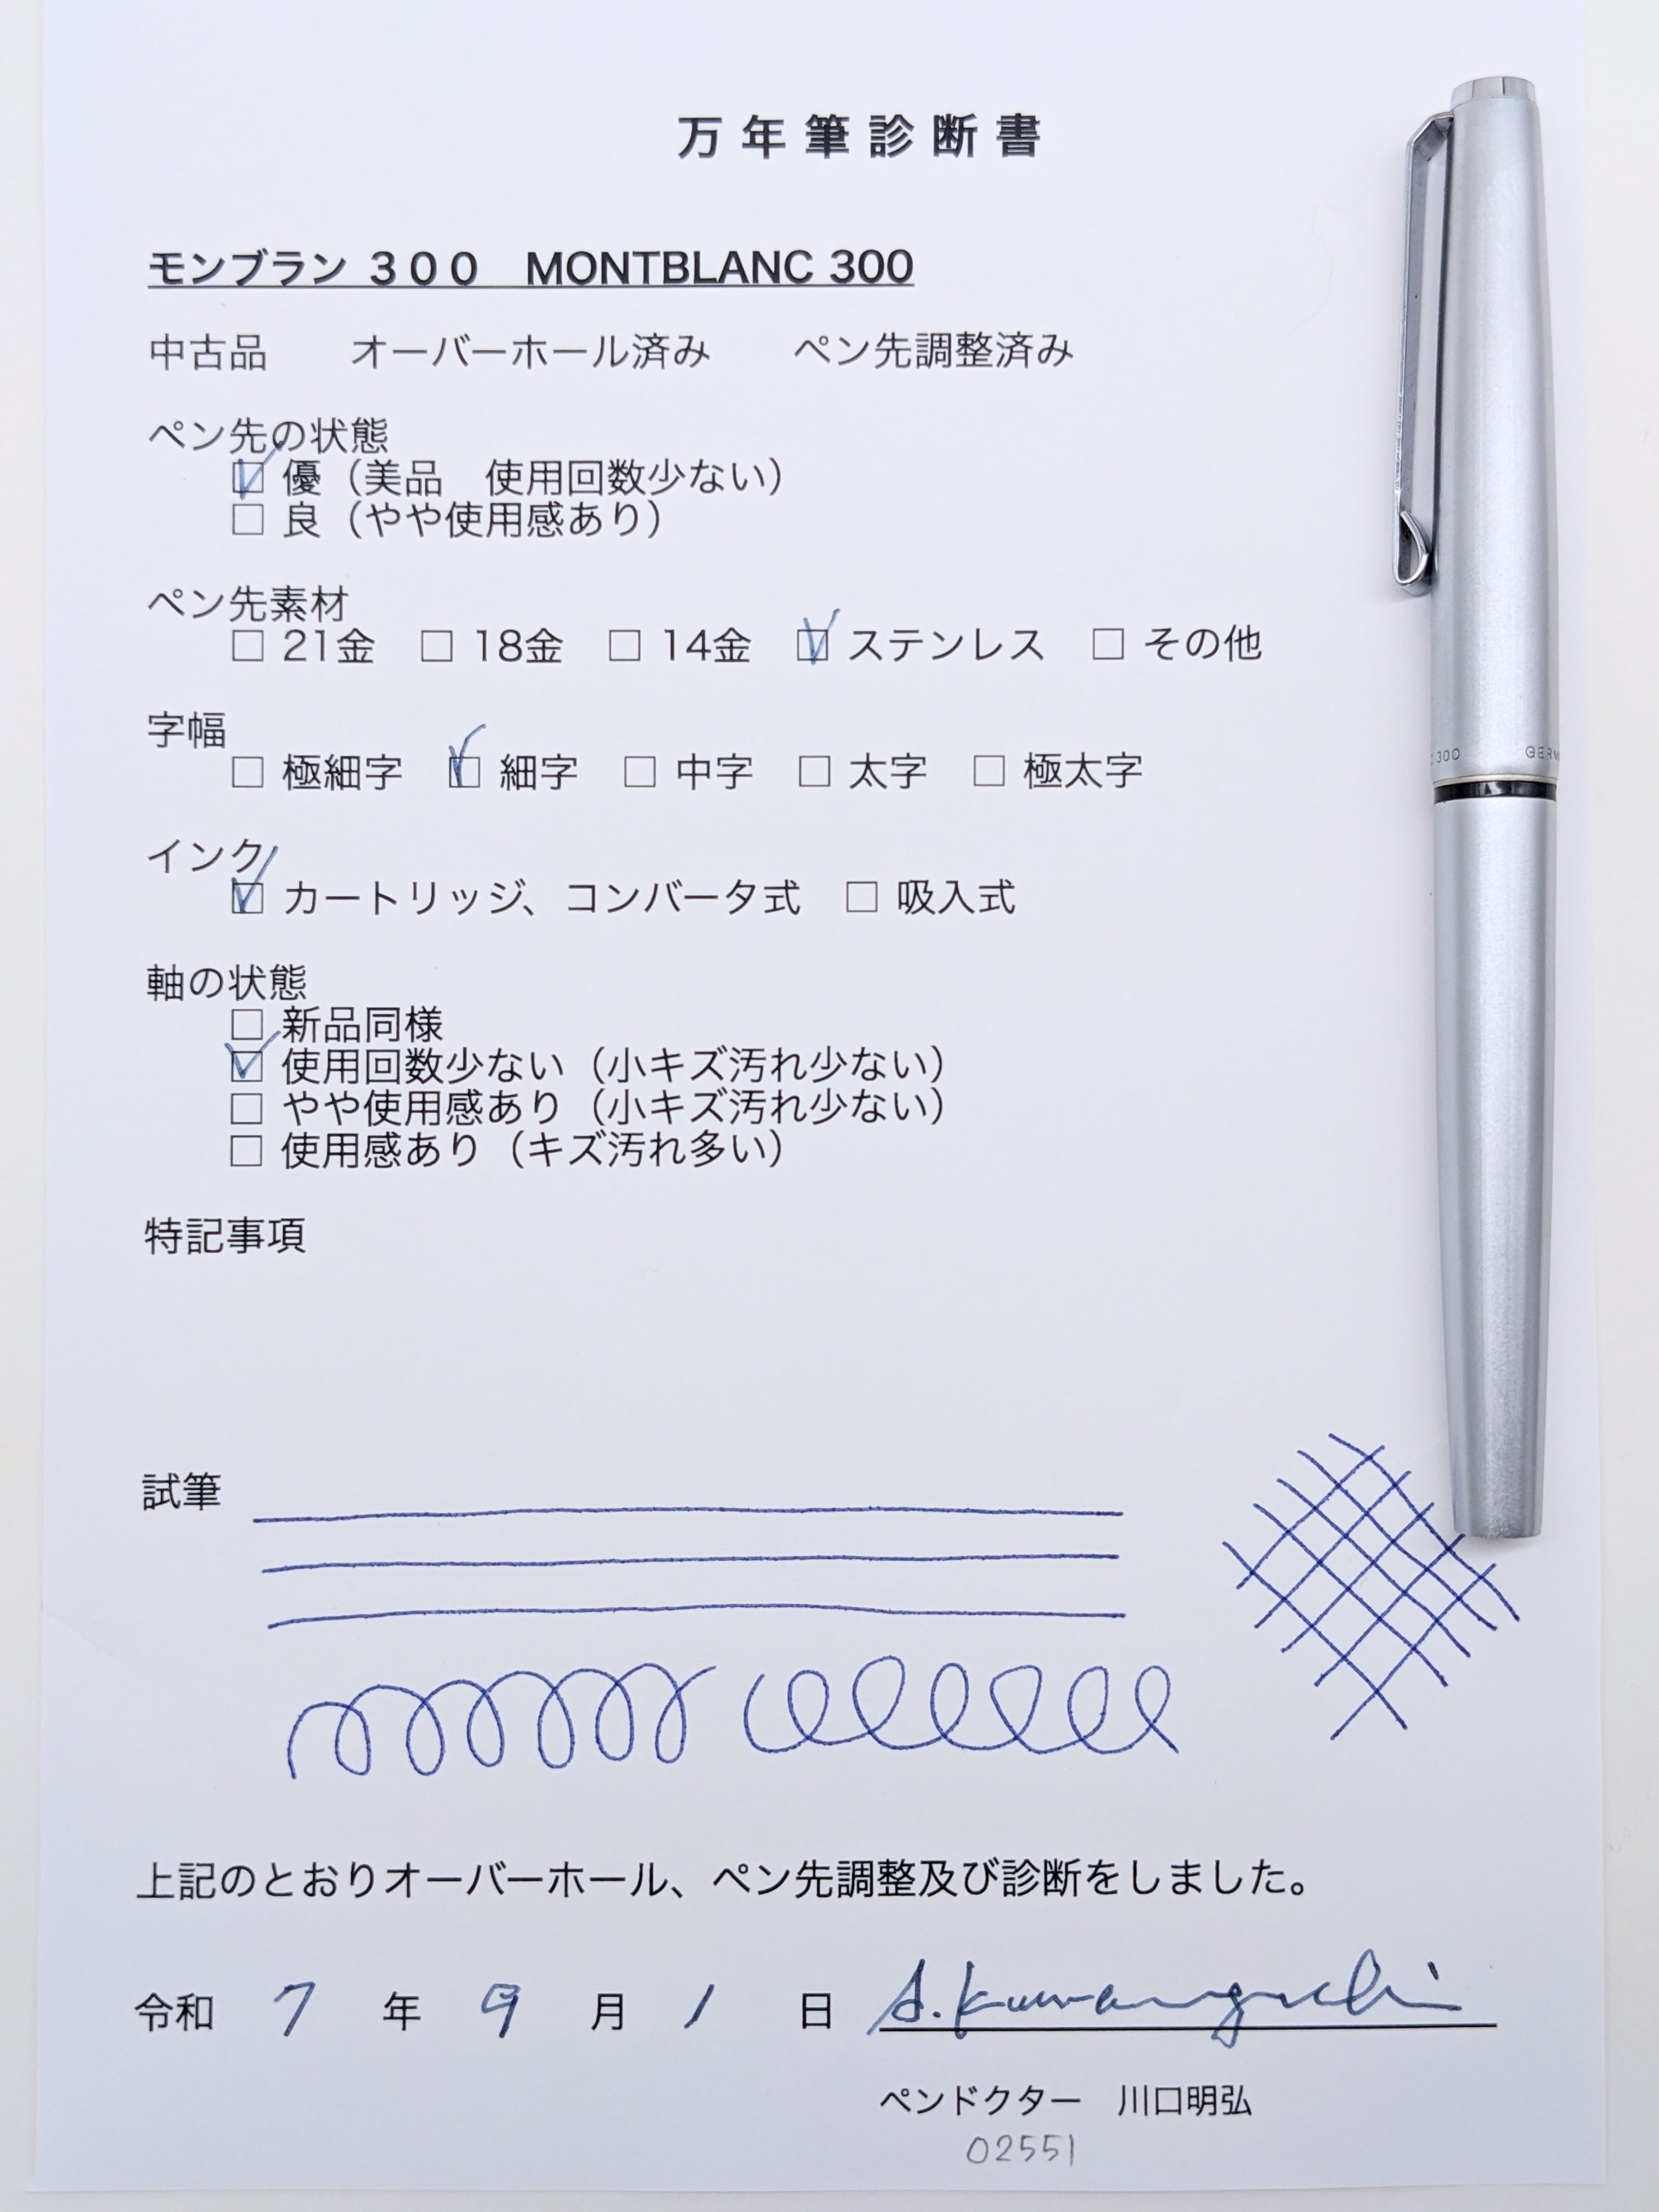 万年筆診断書
モンブラン ３００　MONTBLANC 300
中古品　　オーバーホール済み　　ペン先調整済み
ペン先の状態
☑ 優（美品　使用回数少ない）
□ 良（やや使用感あり）
ペン先素材
□ 21金　□ 18金　□ 14金　☑ ステンレス　□ その他
字幅
□ 極細字　☑ 細字　□ 中字　□ 太字　□ 極太字
インク
☑ カートリッジ、コンバータ式　□ 吸入式
軸の状態
□ 新品同様
☑ 使用回数少ない（小キズ汚れ少ない）
□ やや使用感あり（小キズ汚れ少ない）
□ 使用感あり（キズ汚れ多い）
特記事項
試筆
上記のとおりオーバーホール、ペン先調整及び診断をしました。
令和　7　年　9　月　1　日　A. Kawaguchi
ペンドクター　川口明弘
02551
300